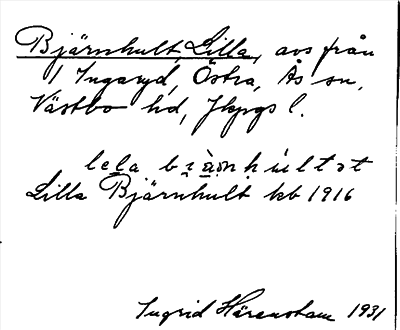 Bjärnhult, Lilla, avs från
1 Ingaryd, Östra, Ås sn,
Västbo hd, Jkpgs l.
lela
Lilla Bjärnhult kb 1916
Ingrid Härenstam 1931